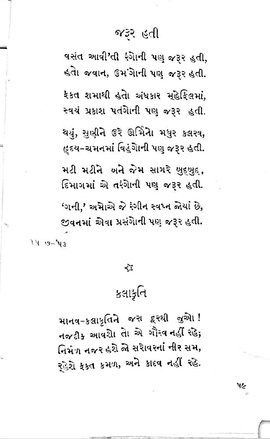 જરૂર હતી
વસંત આવી'તી રંગોની પણ જરૂર હતી,
હતો જવાન, ઉમંગોની પણ જરૂર હતી.
ફક્ત શમાથી હતો અંધકાર મહેફિલમાં,
સ્વયં પ્રકાશ પતંગોની પણ જરૂર હતી.
થયું, સુણીને ઉરે ઊર્મિનો મધુર કલરવ,
હૃદય-ચમનમાં વિહંગોની પણ જરૂર હતી.
મટી મટીને બને જેમ સાગરે બુદ્‌બુદ,
દિમાગમાં એ તરંગોની પણ જરૂર હતી.
'ગની,' અમોએ જે રંગીન સ્વપ્ન જોયાં છે,
જીવનમાં એવા પ્રસંગોની પણ જરૂર હતી.
૧૫ ૭-'૫૩
કલાકૃતિ
માનવ-કલાકૃતિને જરા દૂરથી જુઓ!
નજદીક આવશો તો એ ગૌરવ નહીં રહે;
નિર્મળ નજર હશે જો સરોવરનાં નીર સમ,
રહેશે ફક્ત કમળ, અને કાદવ નહીં રહે.
૫૯